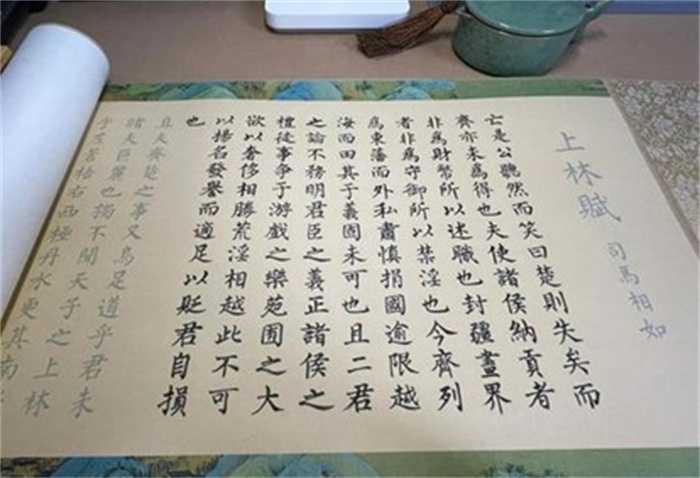 上林賦
司馬相如
亡是公聽然而笑曰楚則失矣而
齊亦未爲得也夫使諸侯納貢者
非爲財幣所以述職也封疆畫界
者非爲守御所以禁淫也今齊列
爲東藩而外私肅慎捐國逾限越
海而田其于義固未可也且二君
之論不務明君臣之義正諸侯之
禮徒事爭于游戲之樂苑囿之大
欲以奢侈相勝荒淫相越此不可
以揚名發譽而適足以貶君自損
也
且夫齊楚之事又烏足道乎君未
睹夫巨麗也獨不聞天子之上林
乎左蒼梧右西極丹水更其南